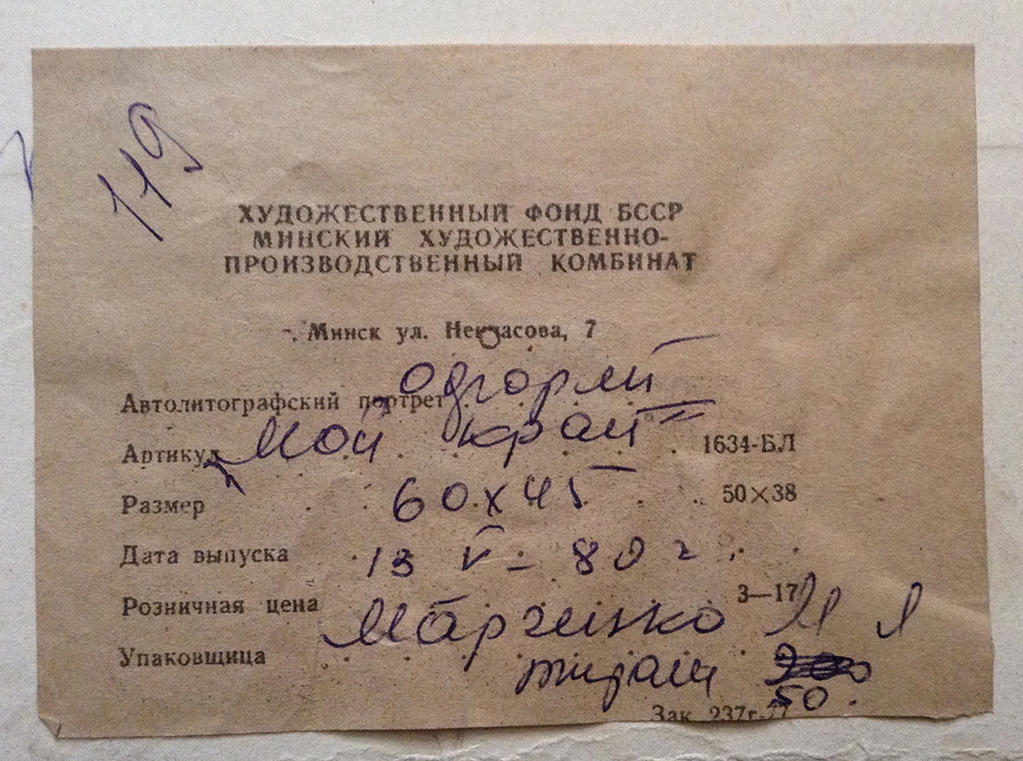 119
ХУДОЖЕСТВЕННЫЙ ФОНД БССР
МИНСКИЙ ХУДОЖЕСТВЕННО-
ПРОИЗВОДСТВЕННЫЙ КОМБИНАТ
Минск ул. Некрасова, 7
Автолитографский портрет
Артикул Мой край 1634-БЛ
Размер 60х45 50×38
Дата выпуска 13 V - 80 г.
Розничная цена 3—17
Марченко И Я
Упаковщица
тираж 50.
Зак. 237г-77